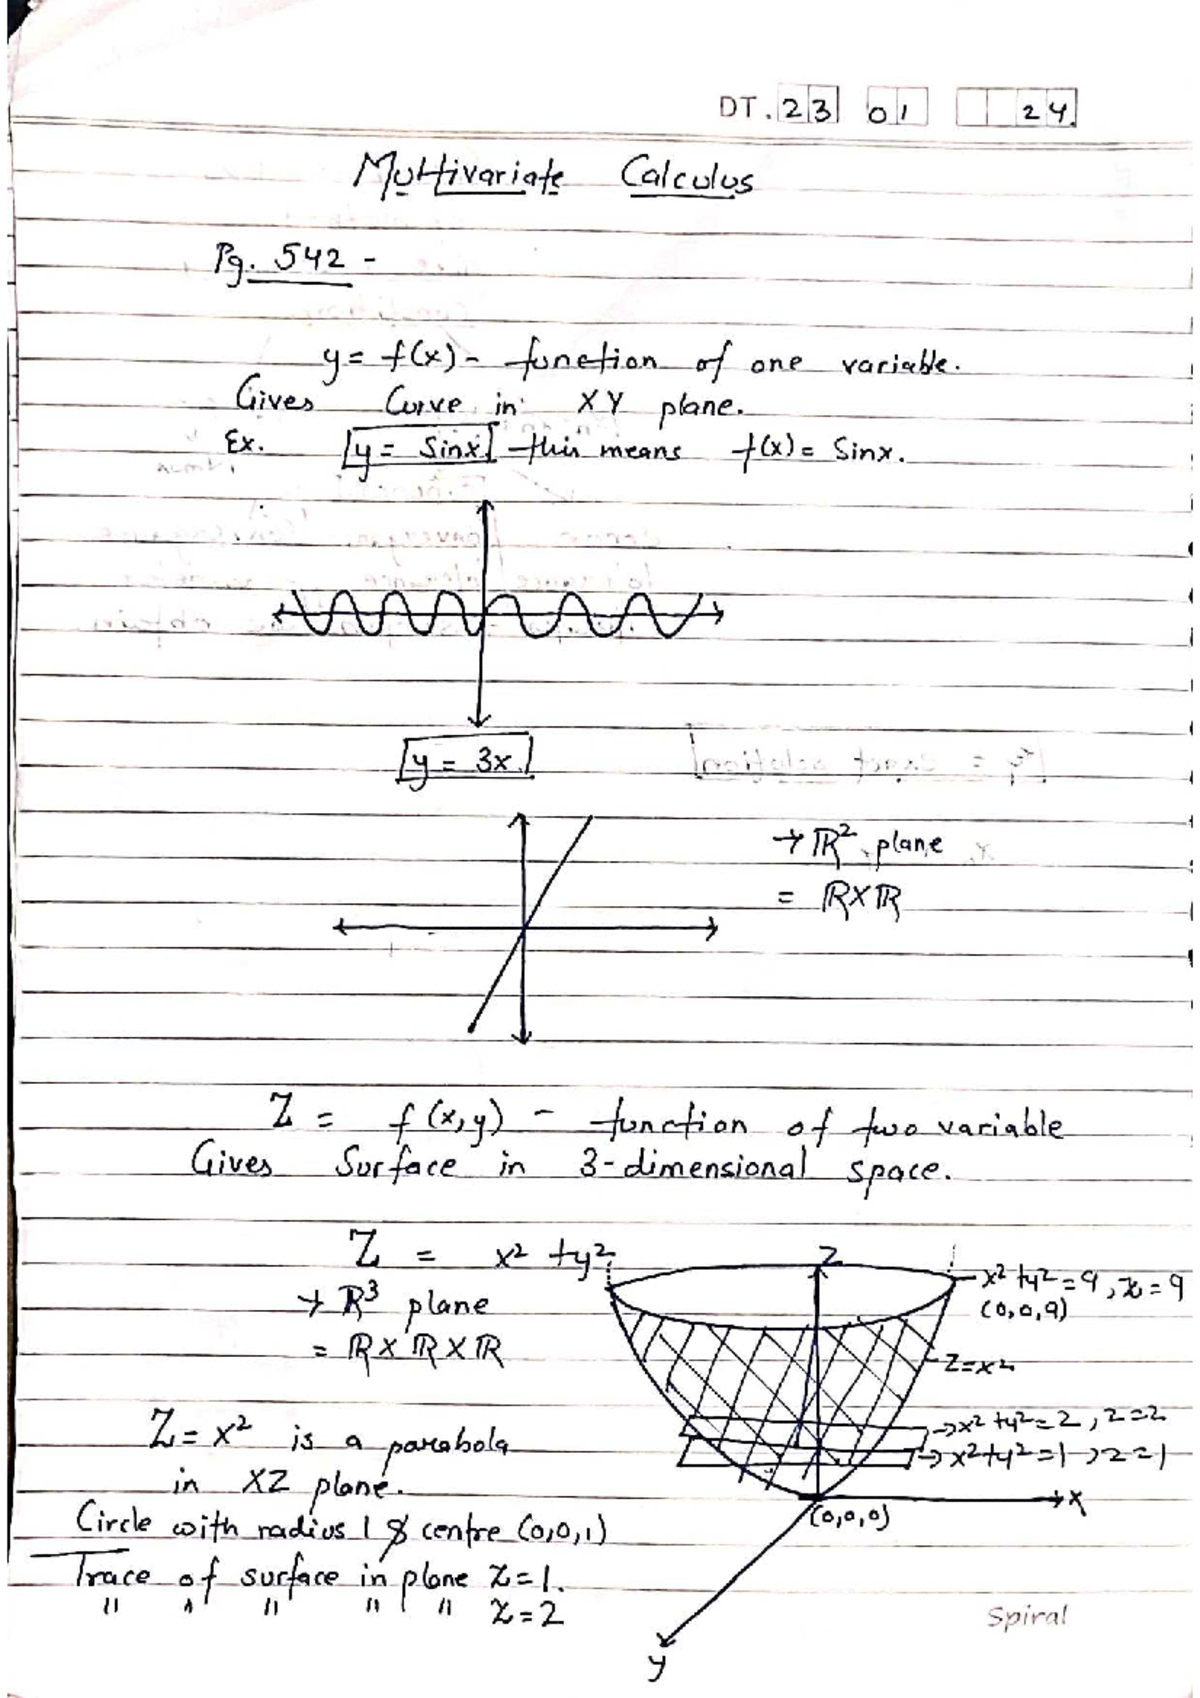 DT. 23 01 24
Multivariate Calculus
Pg. 542 -
y = f(x) - function of one variable.
Gives Curve in XY plane.
Ex. y = Sinx this means f(x) = Sinx.
y = 3x
→ ℝ² plane
= ℝ×ℝ
Z = f(x,y) - function of two variable
Gives Surface in 3-dimensional space.
Z = x² + y²
→ ℝ³ plane
= ℝ×ℝ×ℝ
Z
x² + y² = 9, z = 9
(0,0,9)
Z = x²
→ x² + y² = 2, z = 2
→ x² + y² = 1 → z = 1
X
(0,0,0)
y
Z = x² is a parabola
in XZ plane.
Circle with radius 1 & centre (0,0,1)
Trace of surface in plane z = 1.
" " " " " z = 2
Spiral